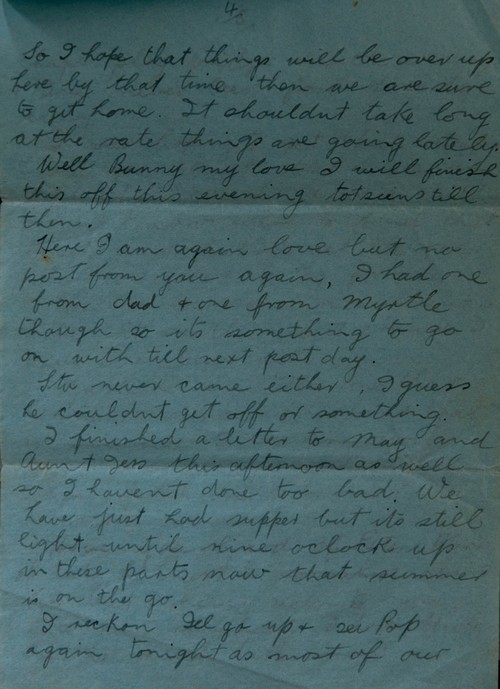 4/
So I hope that things will be over up
here by that time then we are sure
to get home. It shouldnt take long
at the rate things are going lately.
Well Bunny my love I will finish
this off this evening till
then.
Here I am again love but no
post from you again, I had one
from dad + one from Myrtle
though so its something to go
on with till next post day.
Stu never came either, I guess
he couldnt get off or something.
I finished a letter to May and
Aunt Jess this afternoon as well
so I havent done too bad. We
have just had supper but its still
light until nine oclock up
in these parts now that summer
is on the go.
I reckon Ill go up + see Pop
again tonight as most of our